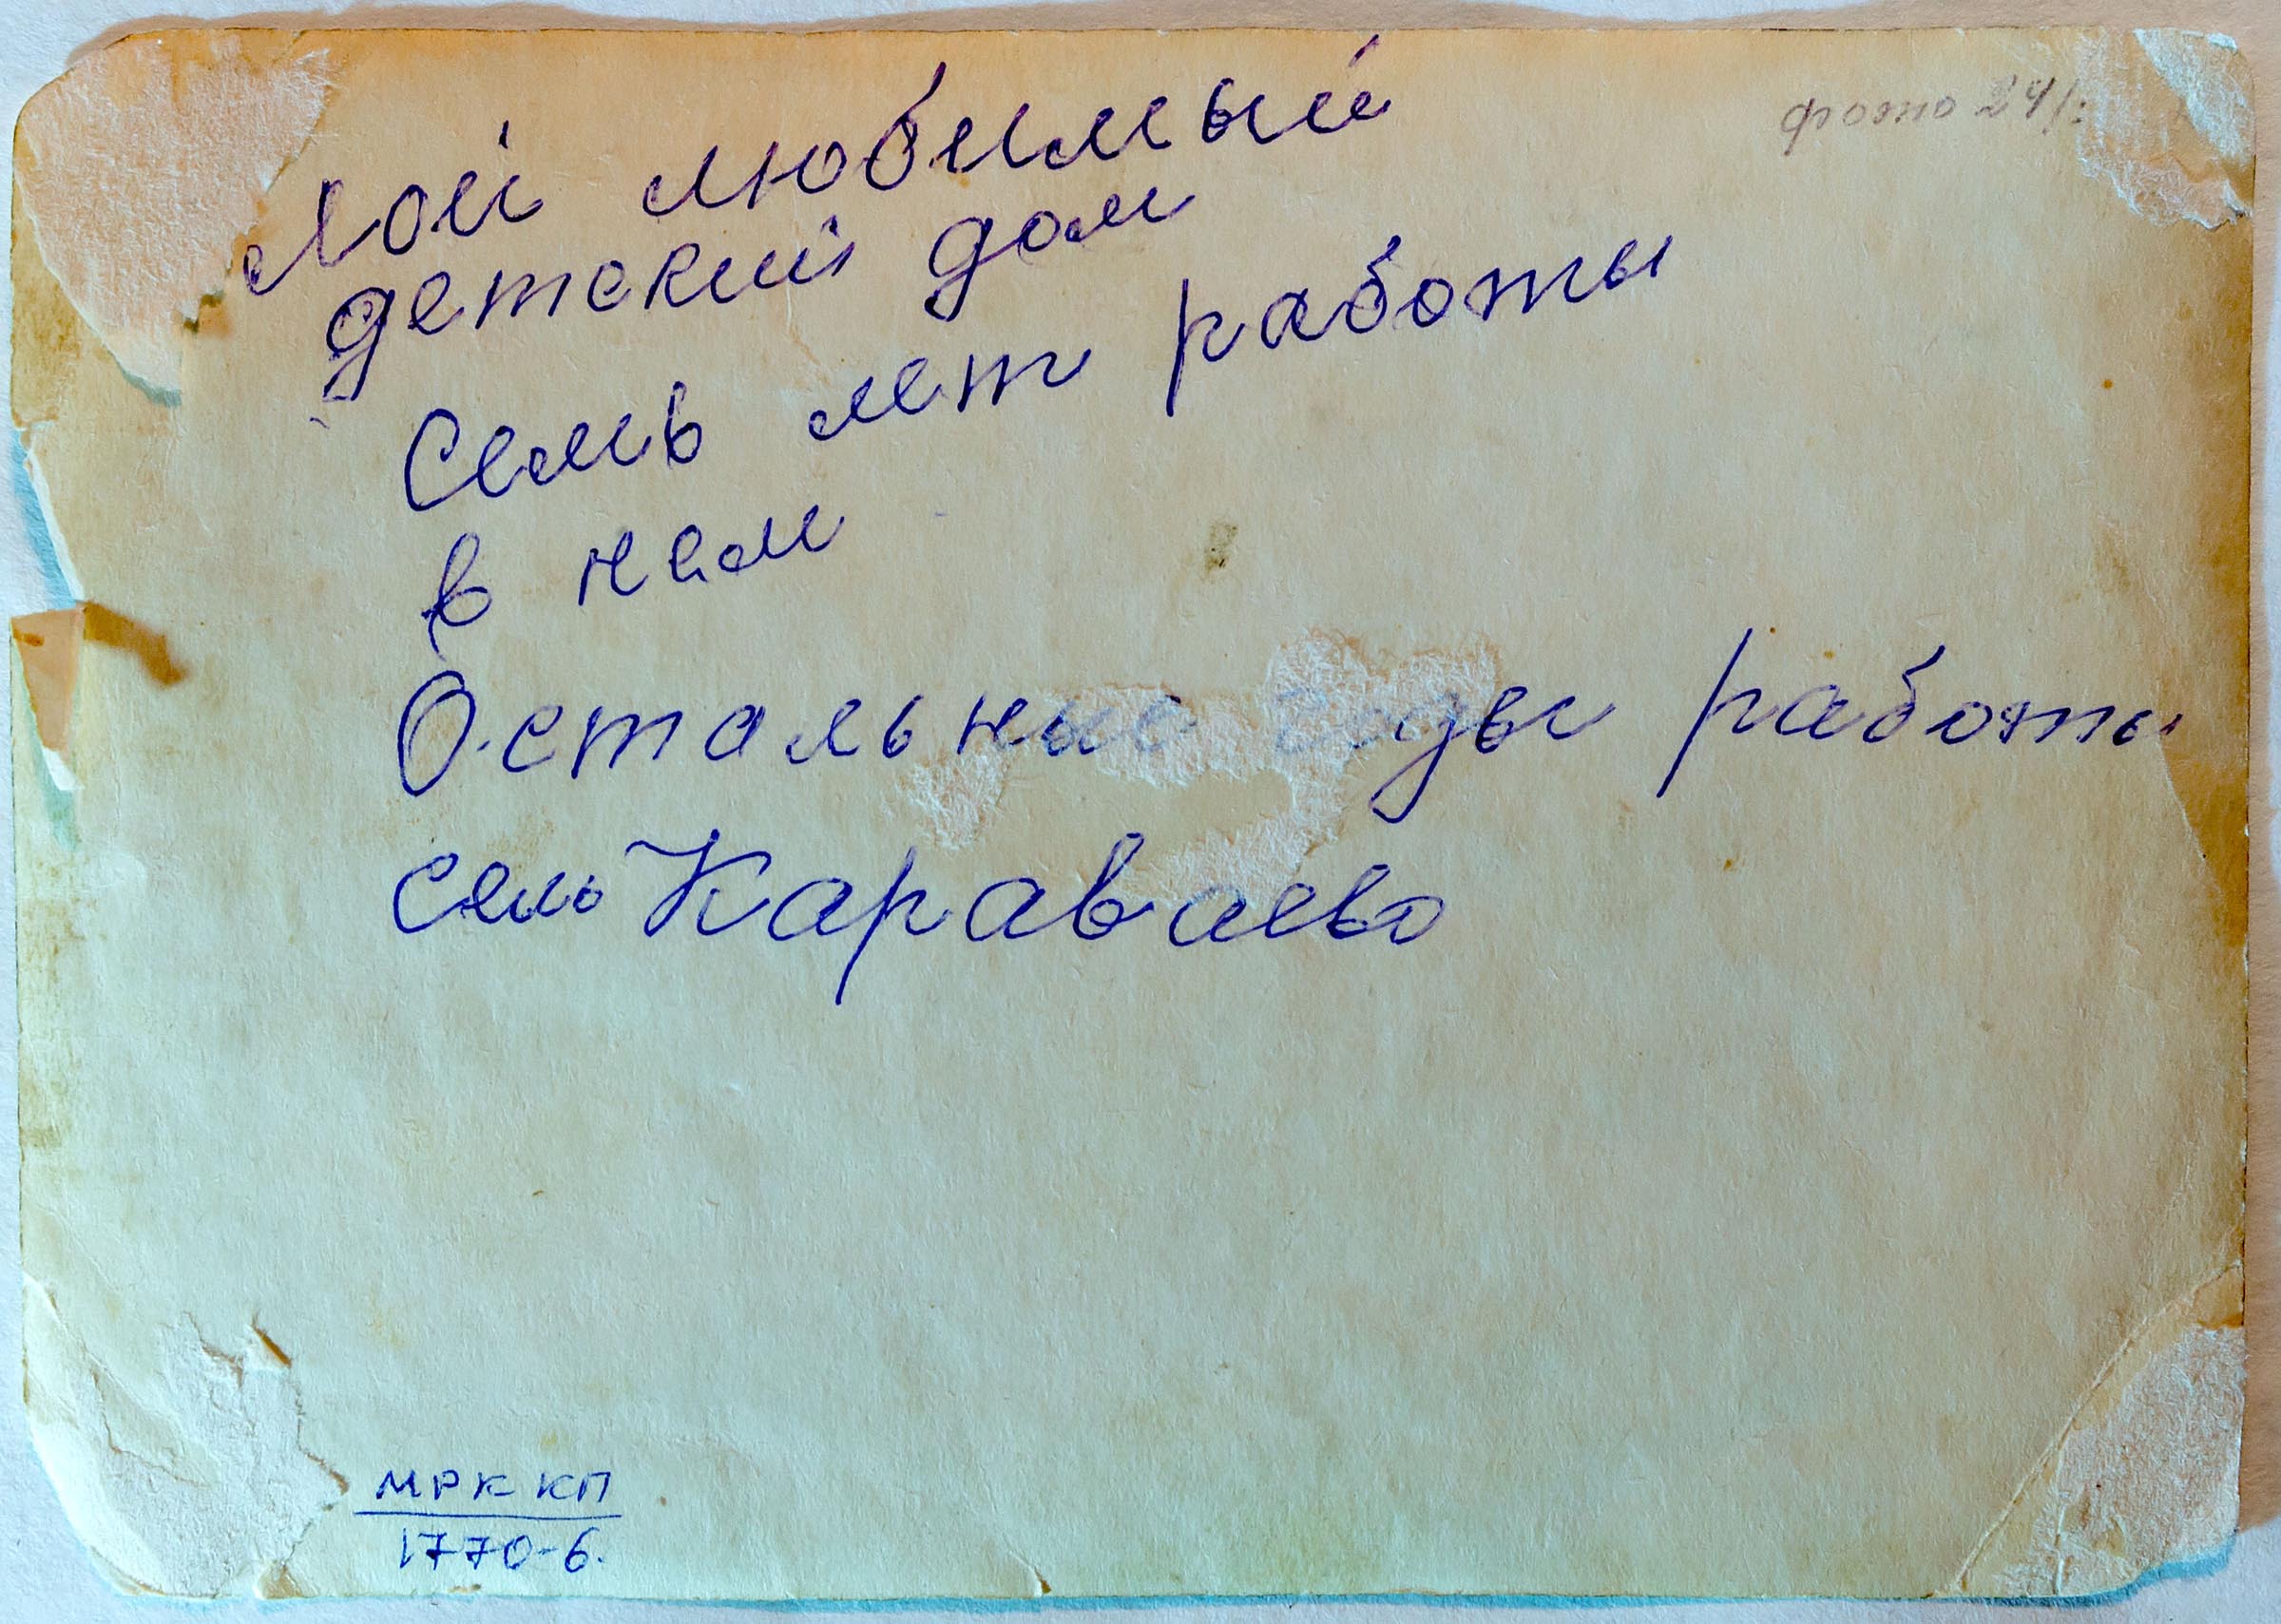 Мой любимый
фото
детский дом
Семь лет работы
в нем
Остальные годы работы
село Караваево
МРК КП
1770-6.